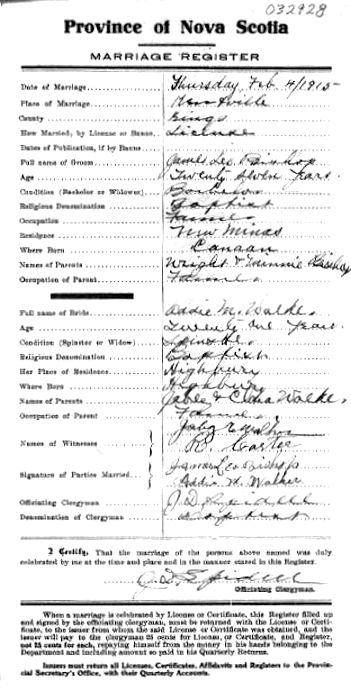 032928
Province of Nova Scotia
MARRIAGE REGISTER
Date of Marriage Thursday Feb. 4/1915
Place of Marriage Kentville
County Kings
How Married; by License or Banns License
Dates of Publication, if by Banns
Full name of Groom James Leo Bishop
Age Twenty Seven Years
Condition (Bachelor or Widower) Bachelor
Religious Denomination Baptist
Occupation Farmer
Residence New Minas
Where Born Canaan
Names of Parents Wright & Minnie Bishop
Occupation of Parent Farmer
Full name of Bride Addie M. Walker
Age Twenty Years
Condition (Spinster or Widow) Spinster
Religious Denomination Baptist
Her Place of Residence Highbury
Where Born Highbury
Names of Parents & Walker
Occupation of Parent Farmer
Names of Witnesses Walker
R.
Signature of Parties Married James Leo Bishop
Addie M. Walker
Officiating Clergyman J. D.
Denomination of Clergyman Baptist
I Certify, That the marriage of the persons above named was duly
celebrated by me at the time and place and in the manner stated in this Register.
J. D.
Officiating Clergyman.
When a marriage is celebrated by License or Certificate, this Register filled up
and signed by the officiating clergyman, must be returned with the License or Certificate,
to the issuer from whom the said License or Certificate was obtained, and the
issuer will pay to the clergyman 25 cents for License, or Certificate, and Register,
not 25 cents for each, repaying himself from the money in his hands belonging to the
Department and including amount so paid in his Quarterly Returns.
Issuers must return all Licenses, Certificates, Affidavits and Registers to the Provincial
Secretary's Office, with their Quarterly Accounts.